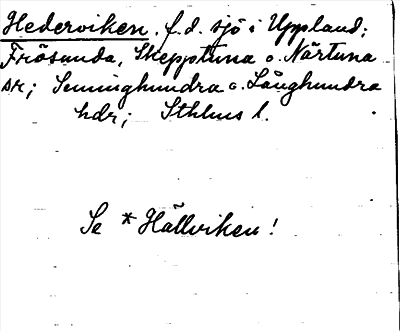 Hederviken, f.d. sjö i Uppland;
Frösunda, Skepptuna o. Närtuna
sn; Seminghundra o. Långhundra
hdr; Sthlms l.
Se *Hällviken!